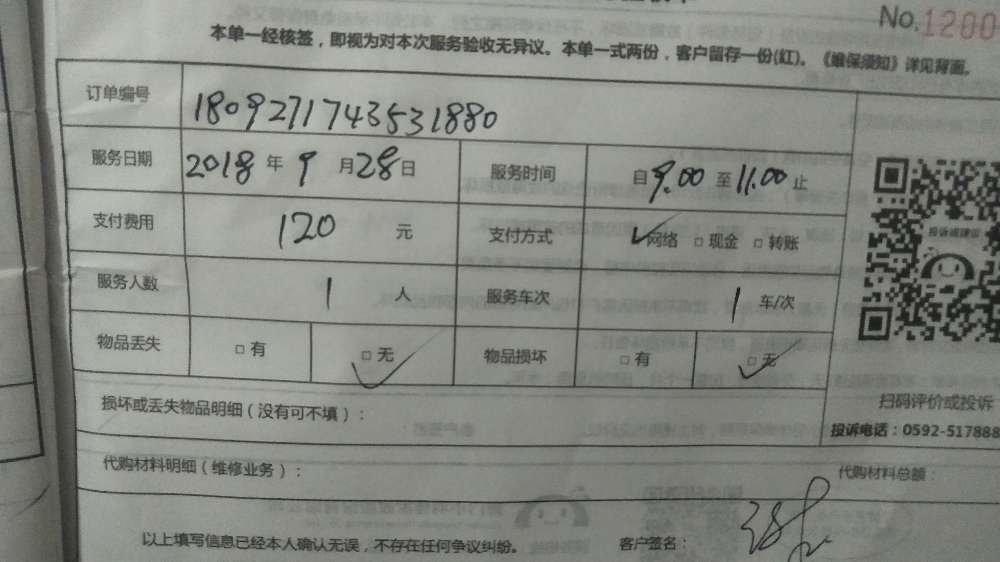 No.1200
本单一经核签，即视为对本次服务验收无异议。本单一式两份，客户留存一份(红)。《维保须知》详见背面。
订单编号 1809271743531880
服务日期 2018 年 9 月 28 日 服务时间 自 9.00 至 11.00 止
支付费用 120 元 支付方式 ✓网络 □ 现金 □ 转账
服务人数 1 人 服务车次 1 车/次
物品丢失 □ 有 □ 无 物品损坏 □ 有 □ 无
投诉或建议
损坏或丢失物品明细（没有可不填）：
扫码评价或投诉
投诉电话：0592-517888
代购材料明细（维修业务）： 代购材料总额
以上填写信息已经本人确认无误，不存在任何争议纠纷。 客户签名：